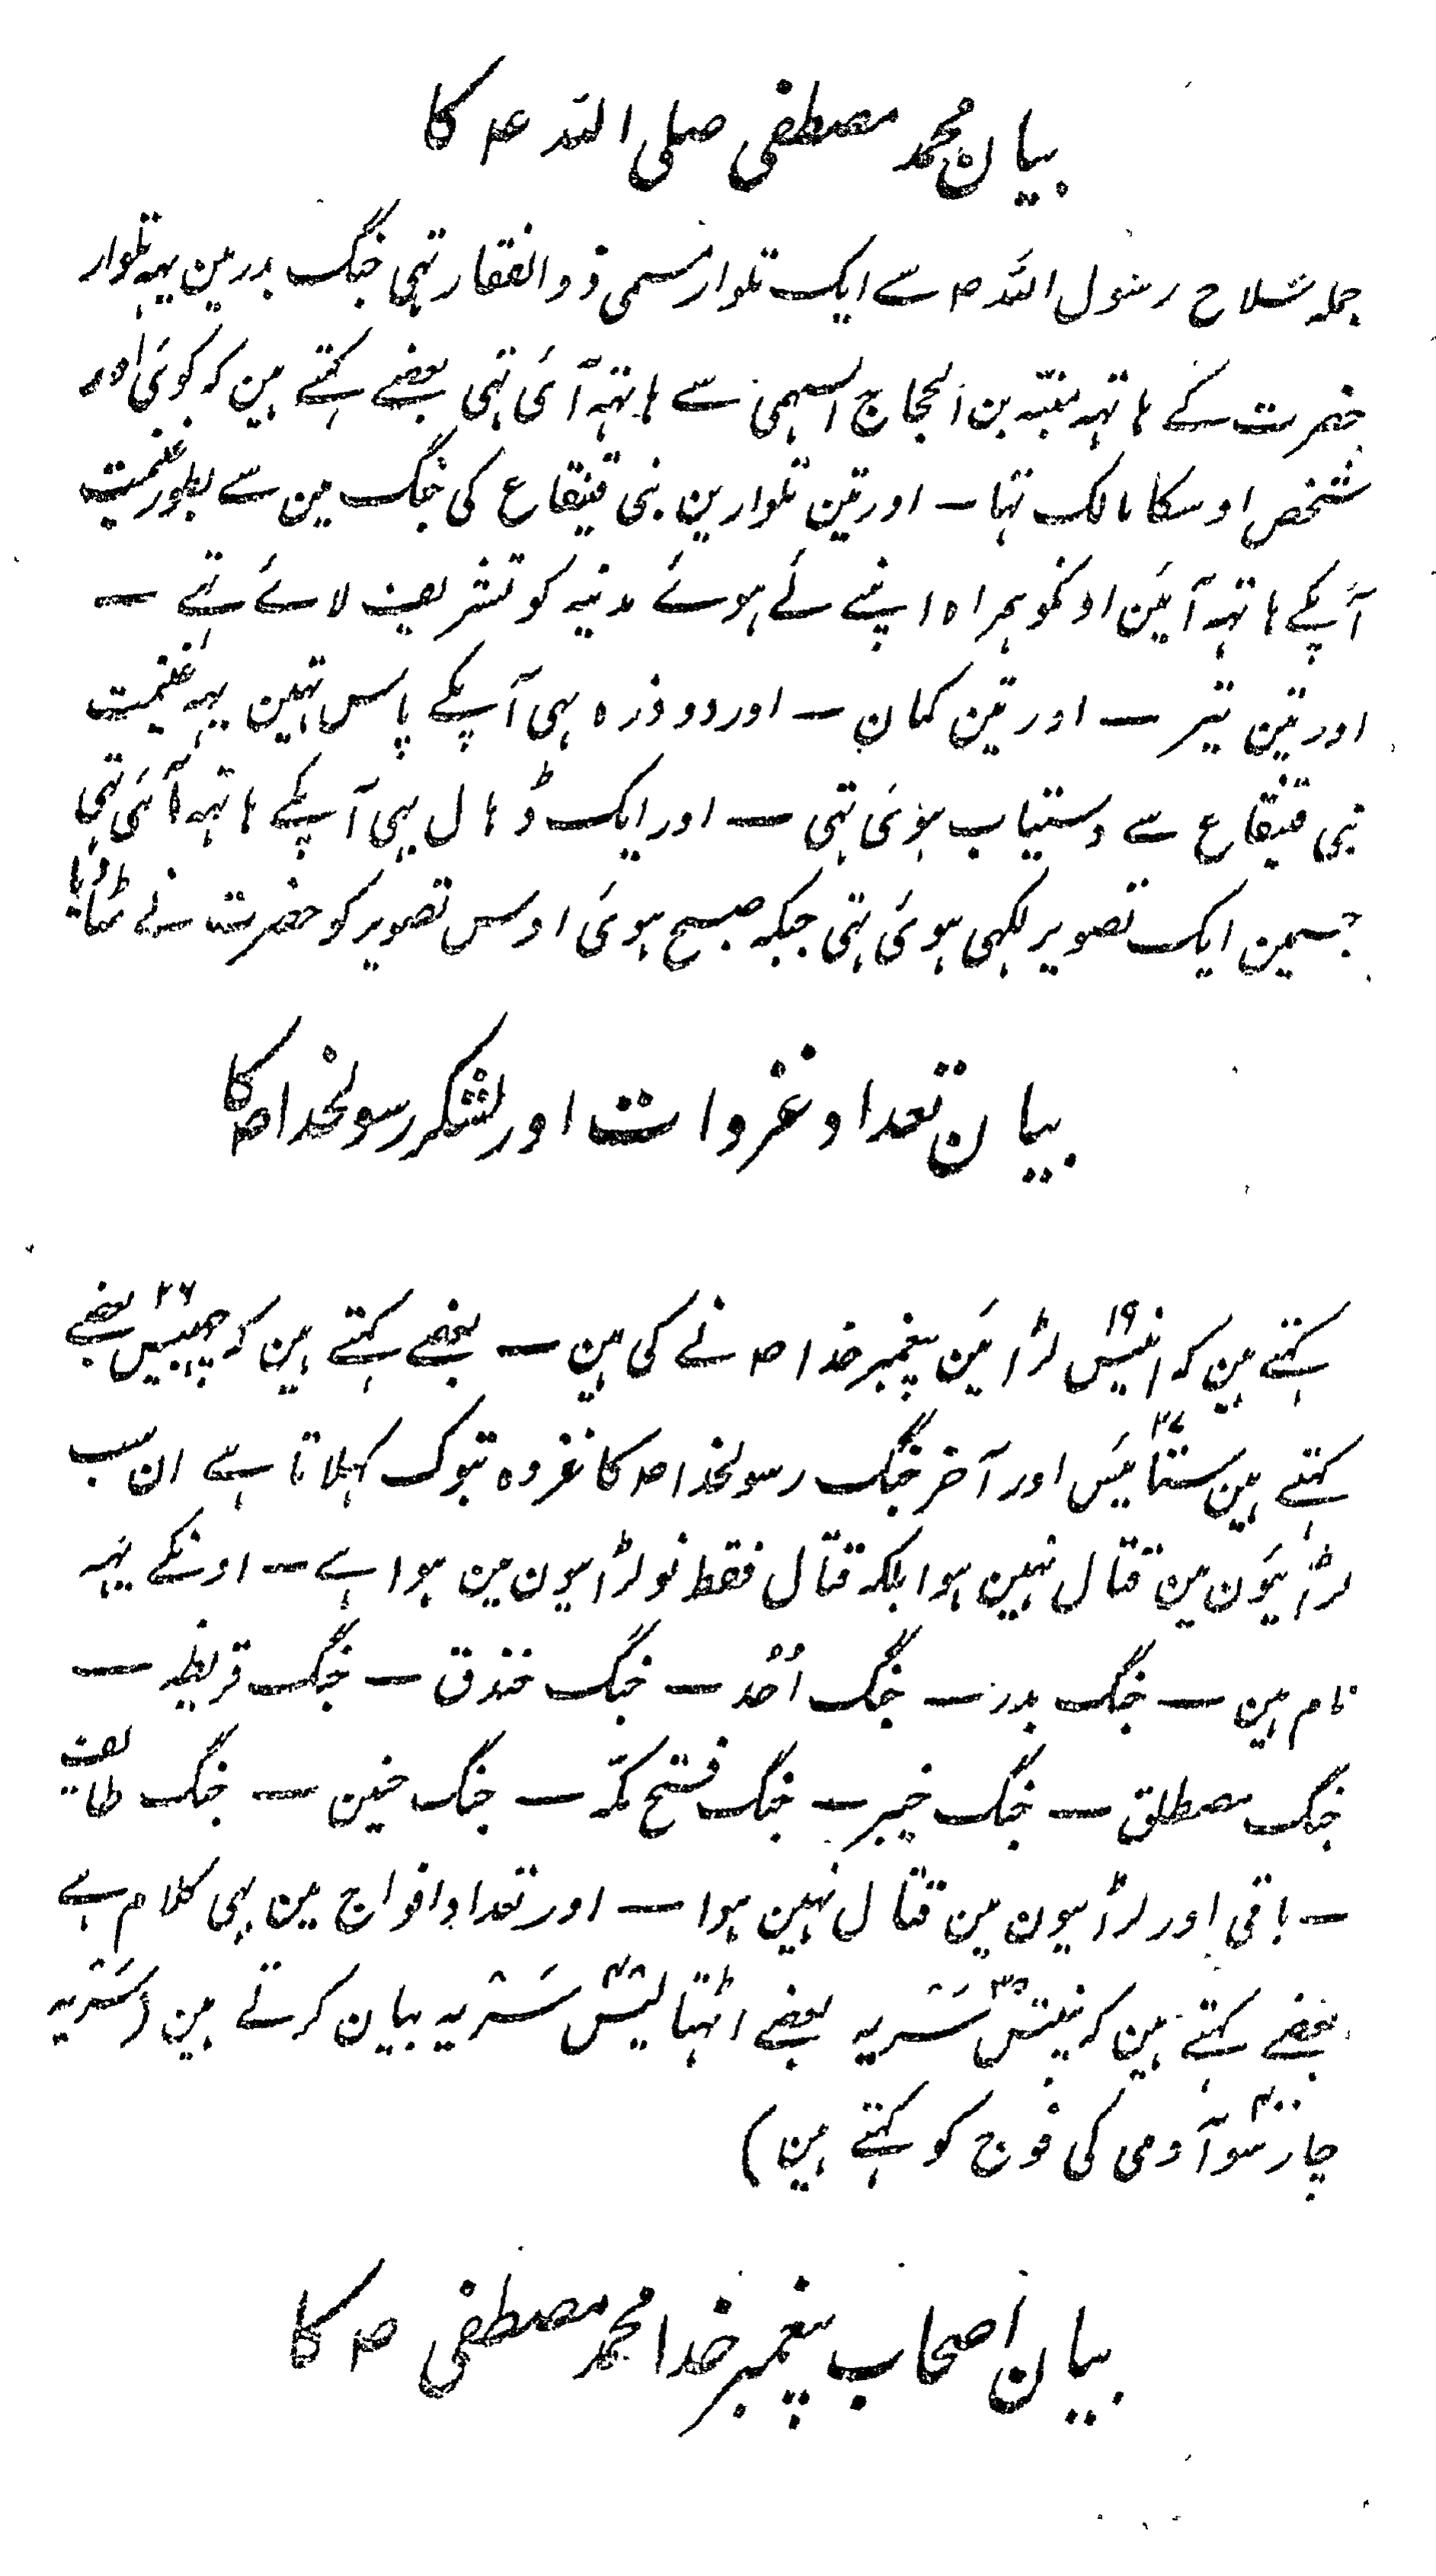 بیان محمد مصطفی صلی اللہ ع م کا
جملہ سلاح رسول اللہ ص سے ایک تلوار مسمی ذوالفقار تہی جنگ بدر مین یہہ تلوار
حضرت کے ہاتہہ منبّہ بن الحجاج السہمی سے ہاتہہ آئی تہی بعضے کہتے ہین کہ کوئی اور
شخص اوسکا مالک تہا — اور تین تلوارین بنی قینقاع کی جنگ مین سے بطور غنیمت
آپکے ہاتہہ آئین اونکو ہمراہ اپنے لئے ہوئے مدینہ کو تشریف لائے تہے —
اور تین تیر — اور تین کمان — اور دو ذرہ بہی آپکے پاس تہین یہہ غنیمت
بنی قینقاع سے دستیاب ہوئی تہی — اور ایک ڈہال بہی آپکے ہاتہہ آئی تہی
جسمین ایک تصویر لکہی ہوئی تہی جبکہ صبح ہوئی اوس تصویر کو حضرت نے مٹا دیا
بیان تعداد غزوات اور لشکر رسولخدا ص کا
کہتے ہین کہ انیس ۱۹ لڑائین پیغمبر خدا ص نے کی ہین — بعضے کہتے ہین کہ چھبیس ۲۶ بعضے
کہتے ہین ستائیس ۲۷ اور آخر جنگ رسولخدا ص کا غزوہ تبوک کہلاتا ہے ان سب
لڑائیون مین قتال نہین ہوا بلکہ قتال فقط نو لڑائیون مین ہوا ہے — اونکے یہہ
نام ہین — جنگ بدر — جنگ اُحُد — جنگ خندق — جنگ قریظہ —
جنگ مصطلق — جنگ خیبر — جنگ فتح مکّہ — جنگ حنین — جنگ طائف
— باقی اور لڑائیون مین قتال نہین ہوا — اور تعداد افواج مین بہی کلام ہے
بعضے کہتے ہین کہ پینتیس ۳۵ سَریہ بعضے اٹہتالیس ۴۸ سَریہ بیان کرتے ہین (سَریہ
چار سو ۴۰۰ آدمی کی فوج کو کہتے ہین)
بیان اصحاب پیغمبر خدا محمد مصطفی ص کا